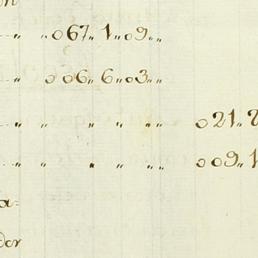 „ „067„1„09„„
„ „006„6„03„„
„ „ „ „ „ 021„
„ „ „ „ „ 009„1
a=
der